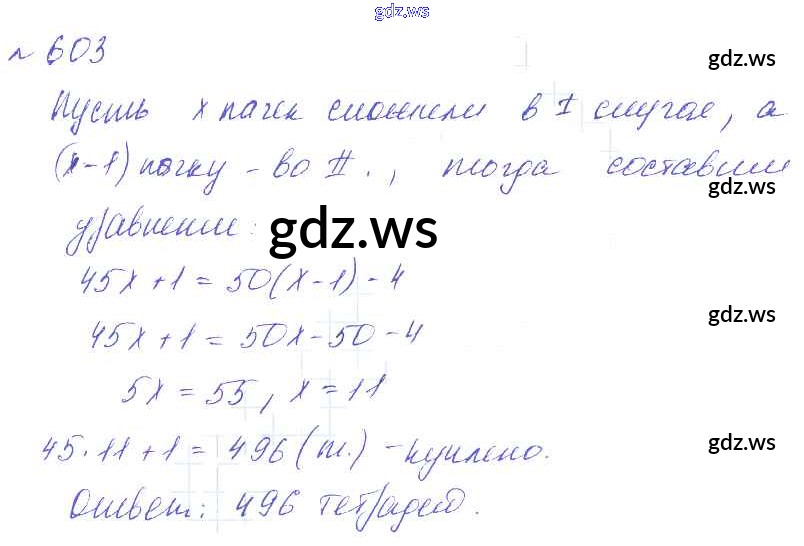 gdz.ws
№ 603
gdz.ws
Пусть х пачек сложили в I случае, а
(х-1) пачку - во II., тогда составим
gdz.ws
уравнение:
gdz.ws
45х+1=50(х-1)-4
gdz.ws
45х+1=50х-50-4
5х=55, х=11
gdz.ws
45·11+1=496(т.) - куплено.
Ответ: 496 тетрадей.